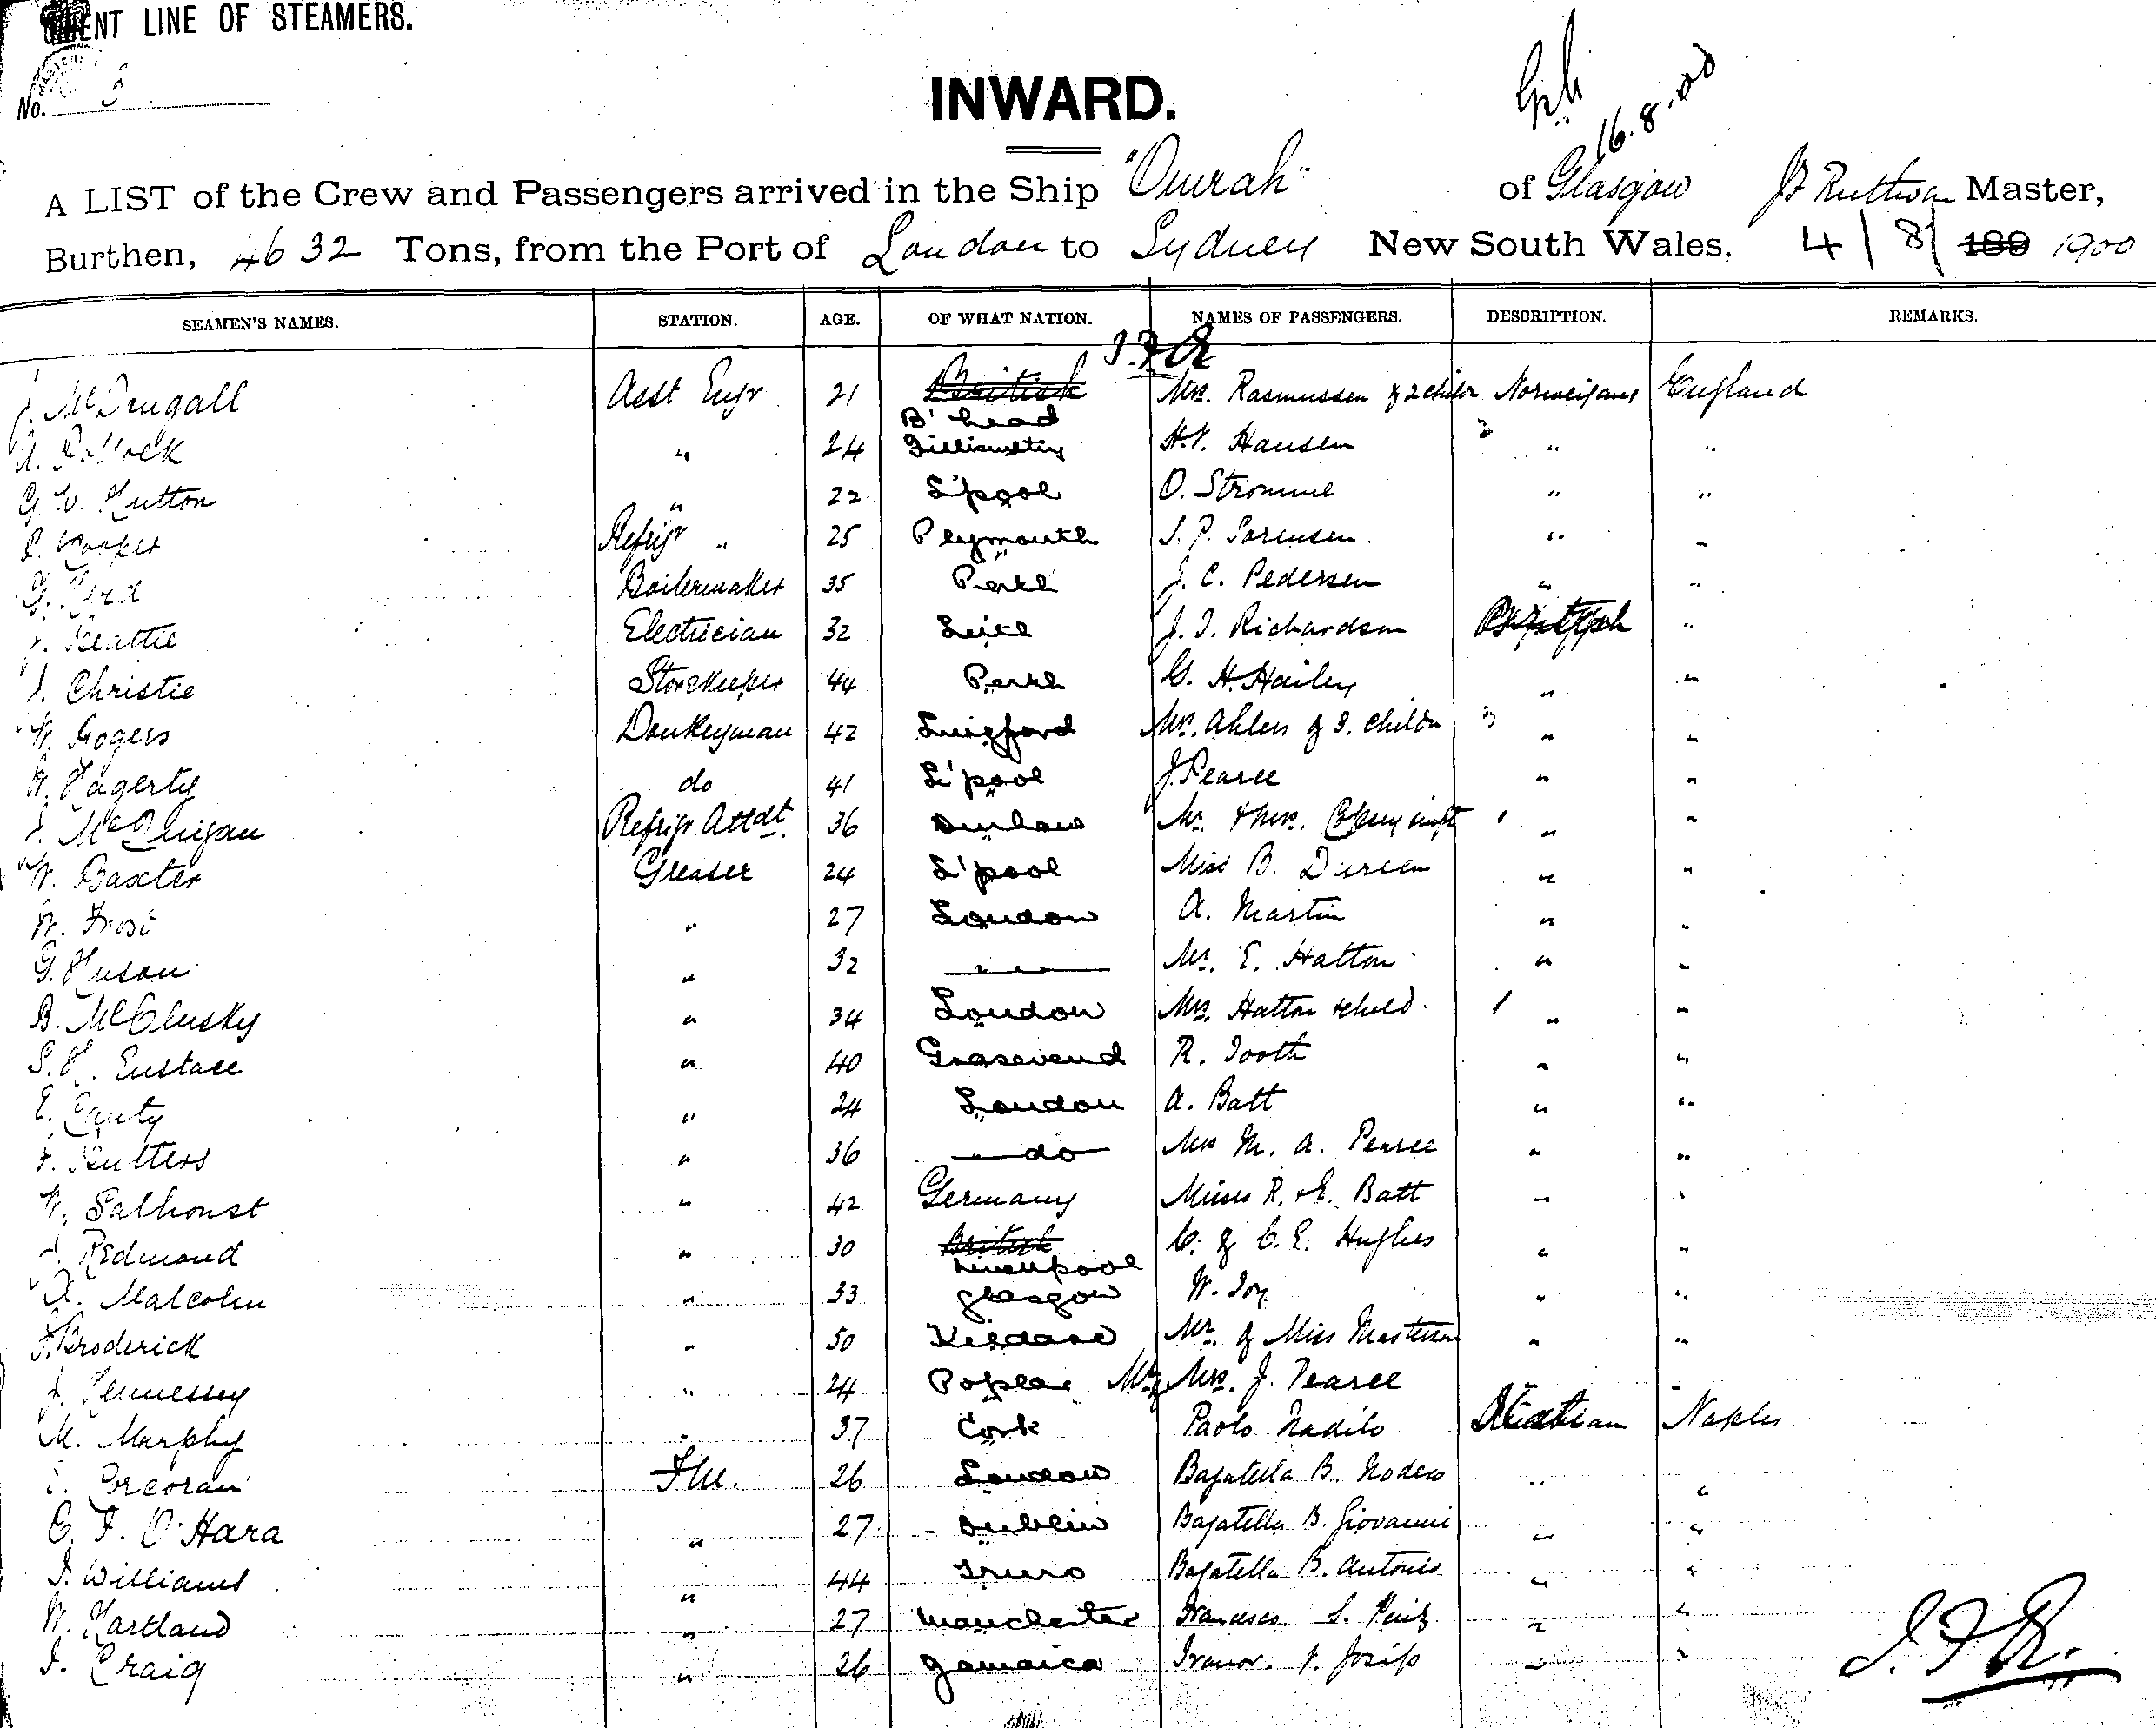 LINE OF STEAMERS.
No. 3
INWARD.
16.8.00
A LIST of the Crew and Passengers arrived in the Ship "Omrah" of Glasgow Master,
Burthen, 4632 Tons, from the Port of London to Sydney New South Wales, 4/8/ 189 1900
SEAMEN'S NAMES. STATION. AGE. OF WHAT NATION. NAMES OF PASSENGERS. DESCRIPTION. REMARKS.
J.F.R.
McDougall Asst Engr 21 British Mrs. Rasmussen & 2 childn Norweigans England
B'head
Pollock " 24 H.P. Hansen " "
G. W. Hutton " 22 L'pool O. Stromme " "
Refrigr " 25 Plymouth J. P. Sorensen " "
G. Boilermaker 35 Perth J. C. Pedersen " "
Beattie Electrician 32 Leith J. J. Richardson British "
J. Christie Storekeeper 44 Perth G. H. Hailey " "
W. Rogers Donkeyman 42 Mrs. Ahlers & 3. childn 3 " "
Hagerty do 41 L'pool J. Pearce " "
McQuigan Refrigr Attdt. 36 Mr. & Mrs. 1 " "
W. Baxter Greaser 24 L'pool Miss B. " "
W. Frost " 27 London A. Martin " "
G. Huson " 32 " Mr. E. Hatton " "
B. McClusky " 34 London Mrs. Hatton & child. 1 " "
S. H. Eustace " 40 Gravesend R. Tooth " "
E. Canty " 24 London A. Batt " "
" 36 " do Mrs M. A. Pearce " "
W. Salhorst " 42 Germany Misses R. & E. Batt " "
Redmond " 30 British C. & C. E. Hughes " "
Liverpool
Malcolm " 33 Glasgow W. Joy " "
Broderick " 50 Kildare Mr. & Miss Masterson " "
J. Hennessey " 24 Poplar Mr & Mrs. J. Pearce " "
M. Murphy " 37 Cork Paolo Nadilo Naples
Corcoran 26 London Bagatella B. " "
C. F. O'Hara " 27 Dublin Bagatella B. Giovanni " "
J. Williams " 44 Truro Bagatella B. Antonio " "
W. Hartland " 27 Manchester Francesco " "
J. Craig " 26 Jamaica " "
J.F.R.